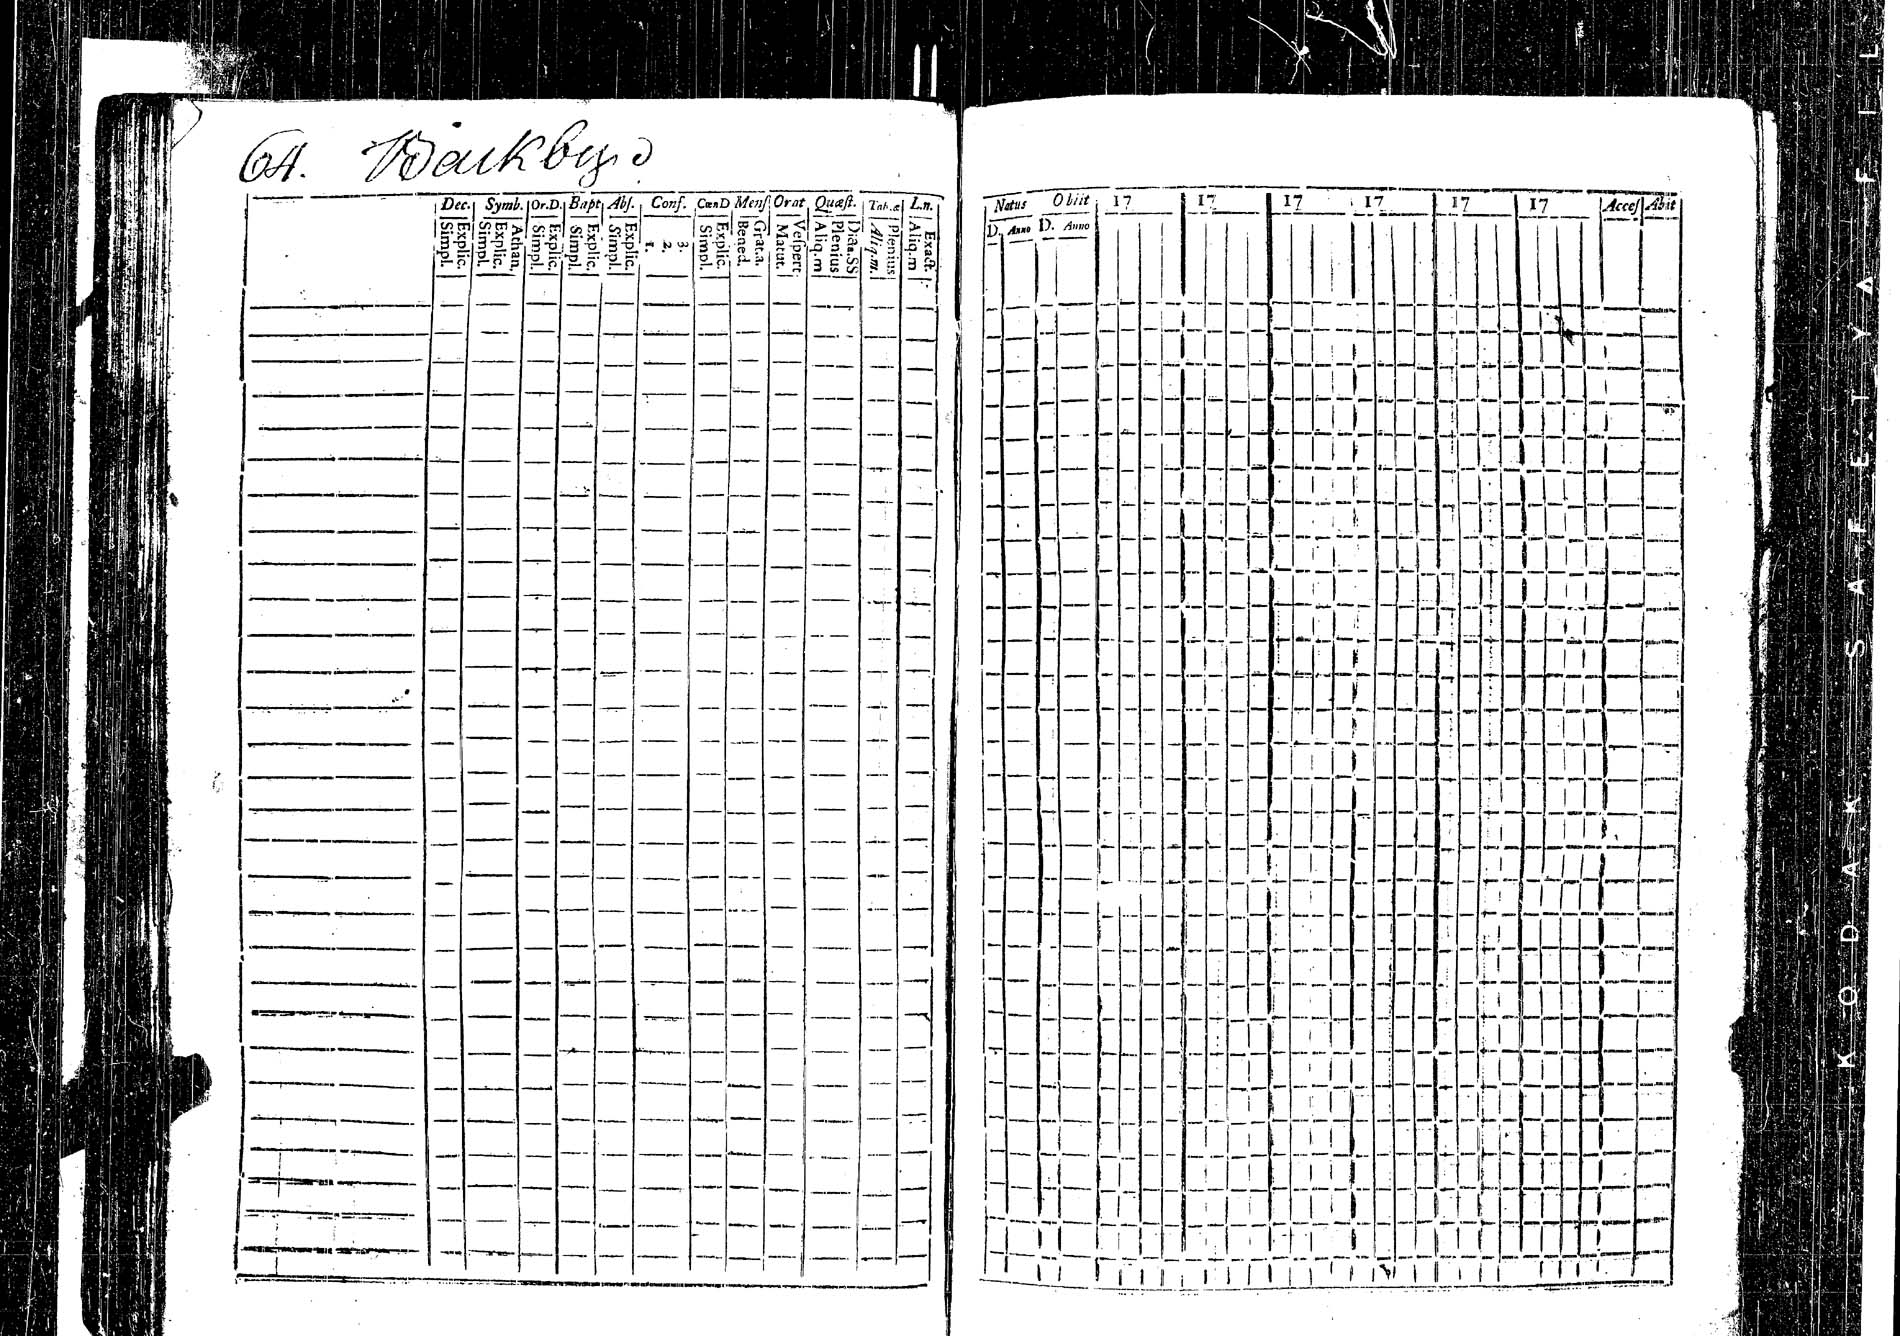 64. Backbyn
Dec. Symb. Or.D. Bapt Abſ. Conf. CœnD Menſ Orat Quæſt. Tab.æ L.n.
Simpl. Explic. Simpl. Explic. Athan. Simpl. Explic. Simpl. Explic. Simpl. Explic. 1. 2. 3. Simpl. Explic. Bened. Grat.a. Matut. Veſpert Aliq.m Plenius Dicta.SS Aliq.m. Plenius Aliq.m Exact.
Natus Obiit 17 17 17 17 17 17 Acceſ Abit
D. Anno D. Anno
KODAK SAFETY A FIL